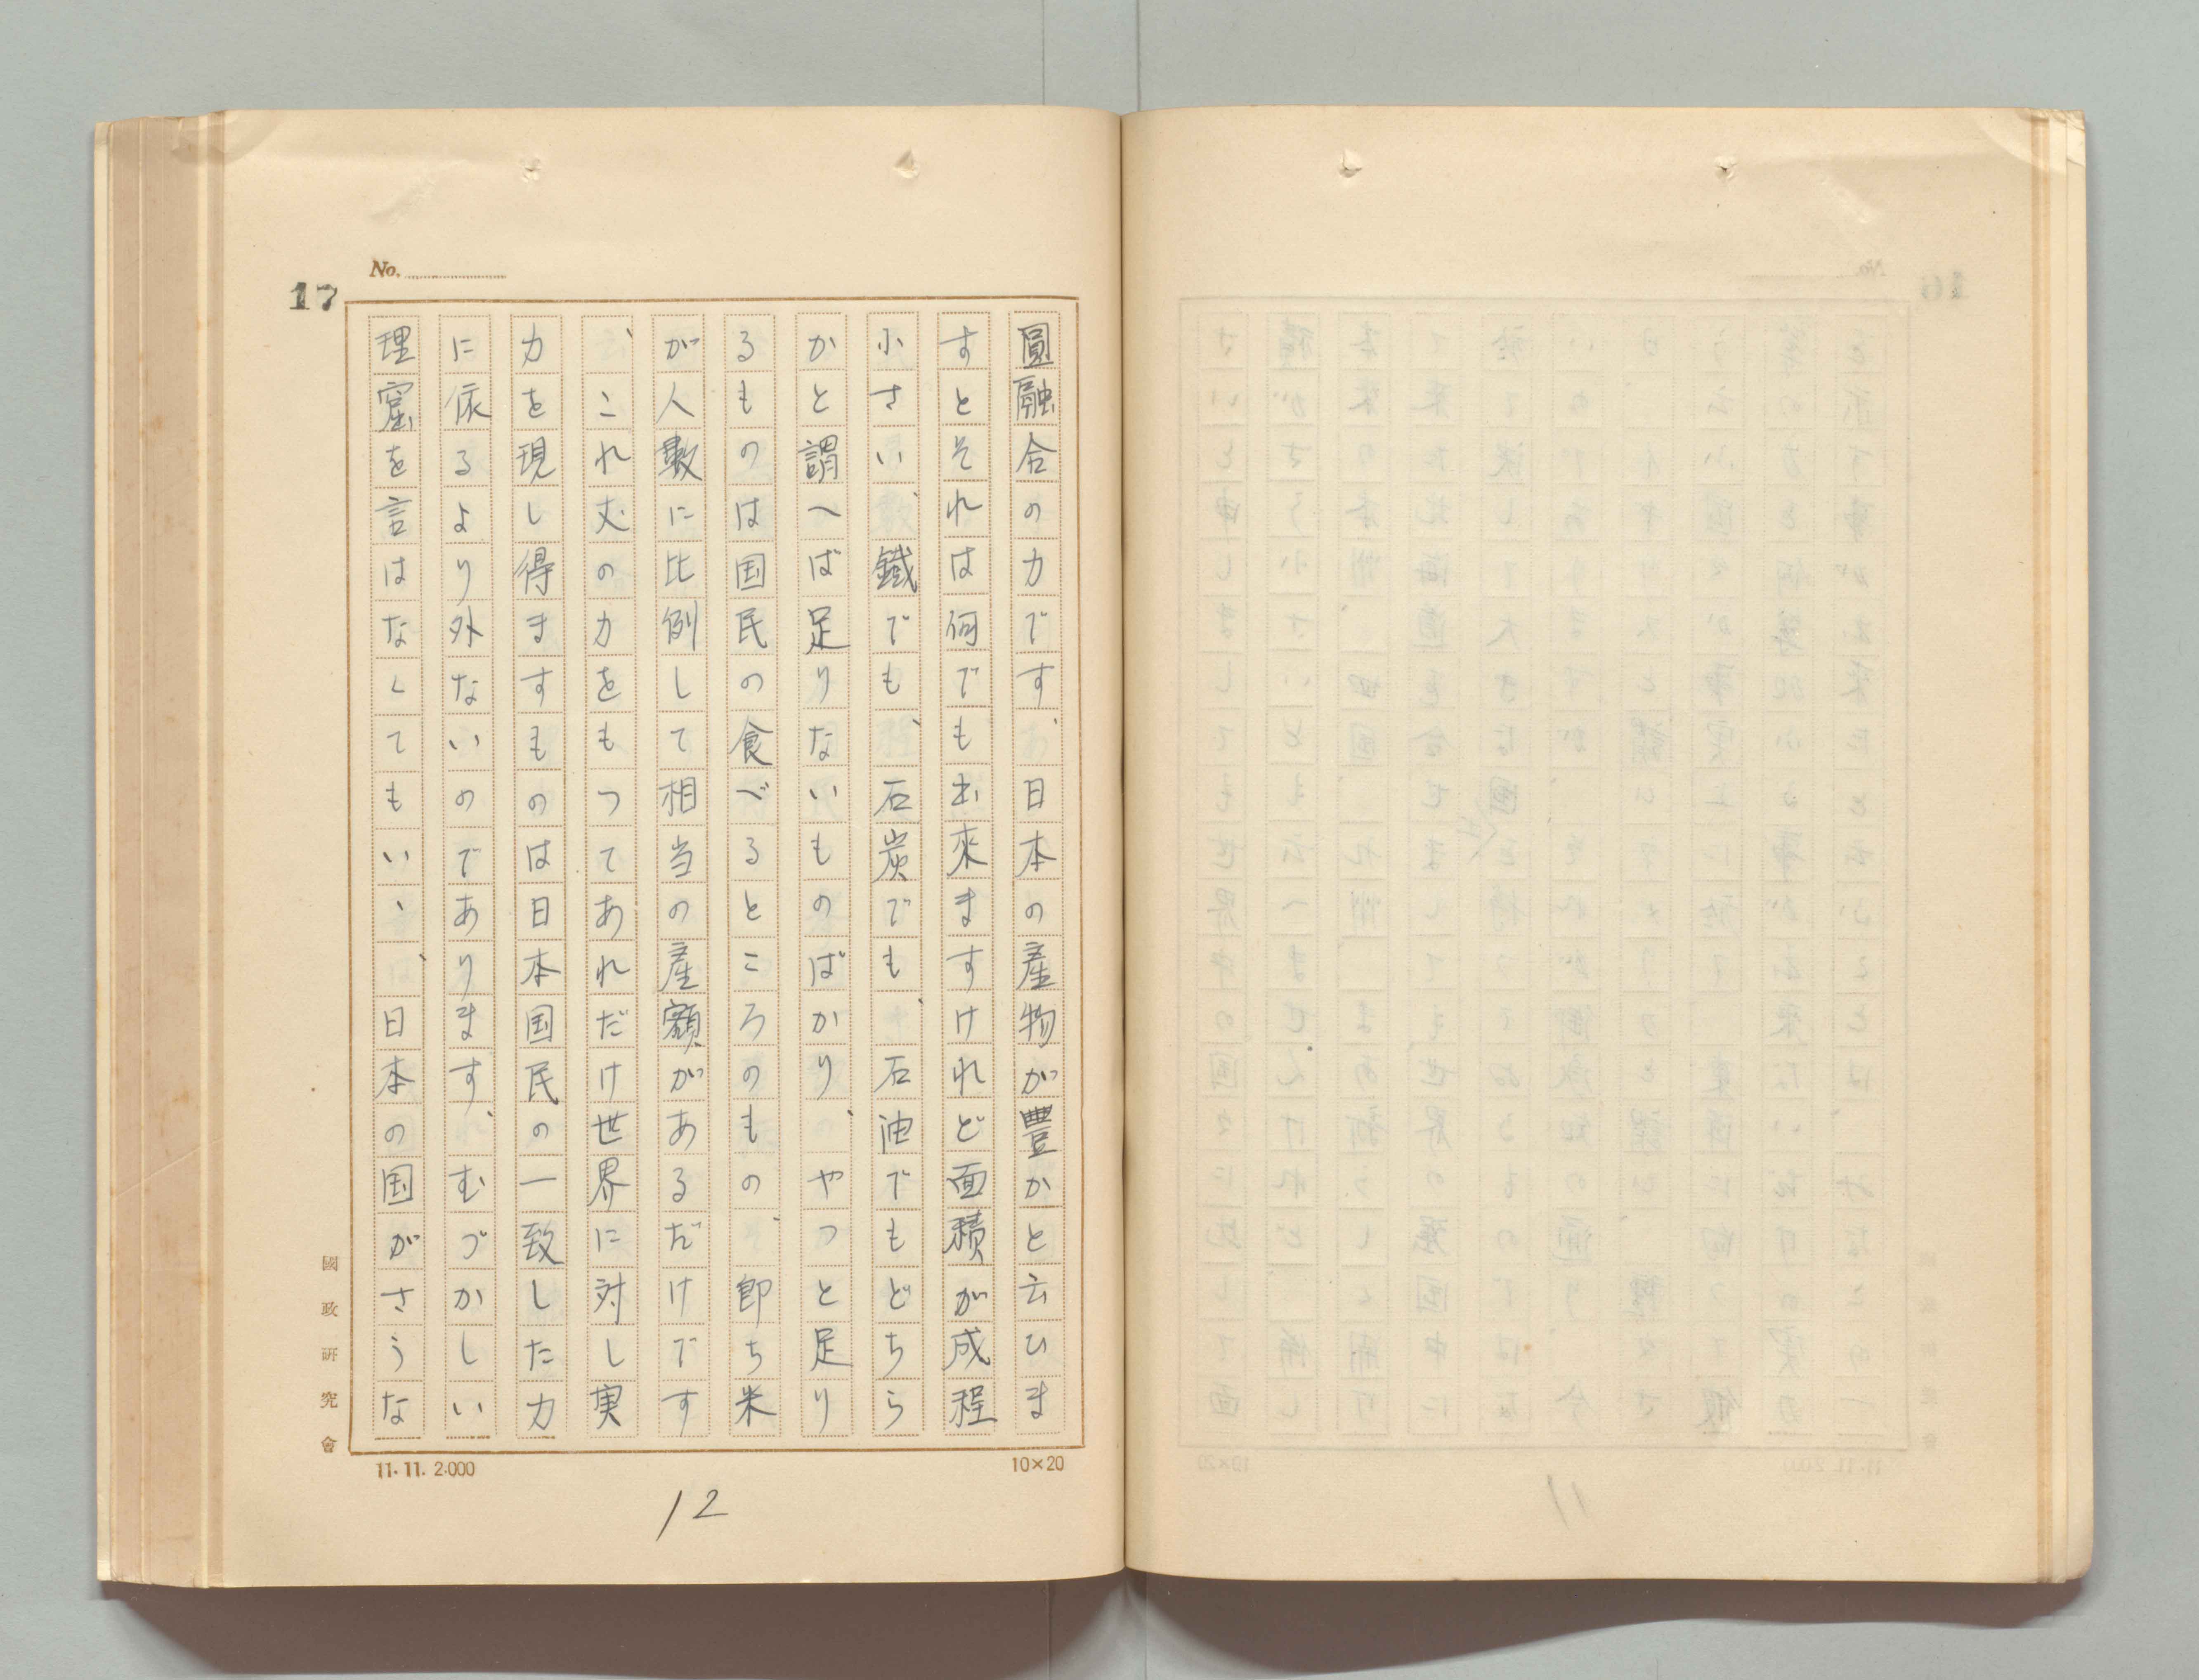 No.
17
圓融合の力です、日本の産物が豊かと云ひま
すとそれは何でも出來ますけれど面積が成程
小さい、鐵でも、石炭でも、石油でもどちら
かと謂へば足りないものばかり、やつと足り
るものは国民の食べるところのもの、即ち米
が人數に比例して相当の産額があるだけです
、これ丈の力をもつてあれだけ世界に対し実
力を現し得ますものは日本国民の一致した力
に依るより外ないのであります、むづかしい
理窟を言はなくてもいゝ、日本の国がさうな
國政研究會
11.11. 2.000
10×20
12